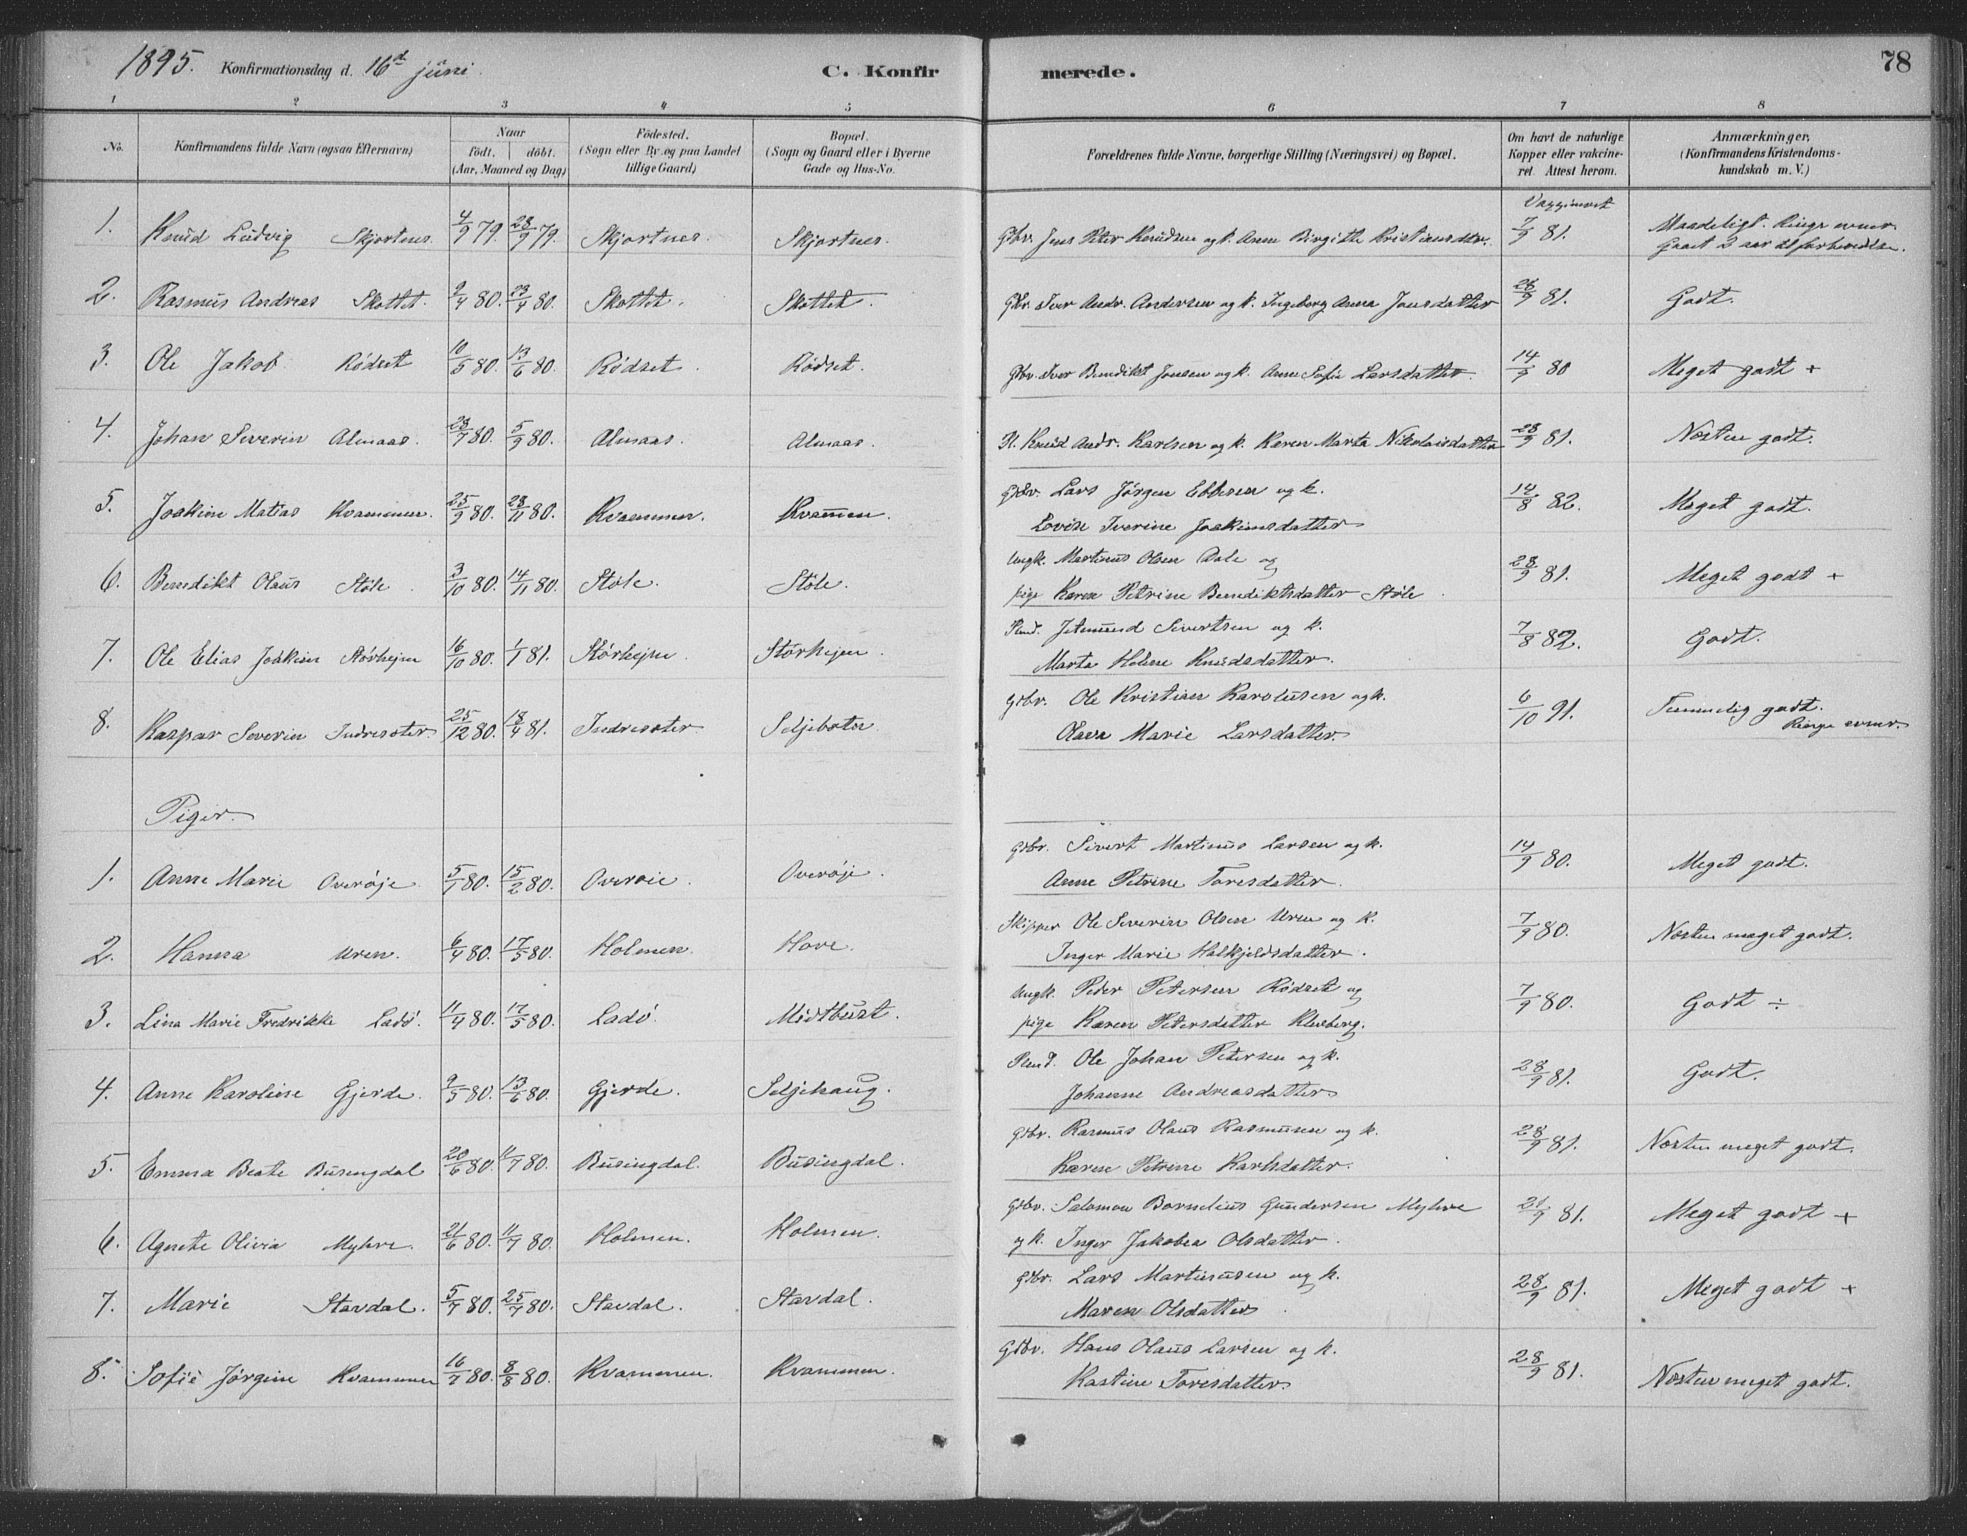 1895. Konfirmationsdag d. 16d juni. C. Konfirmerede. 78
1 2 3 4 5 6 7 8
No. Konfirmandens fulde Navn (ogsaa Efternavn) Naar födt. döbt. (Aar, Maaned og Dag) Födested. (Sogn eller By og paa Landet tillige Gaard) Bopæl. (Sogn og Gaard eller i Byerne Gade og Hus-No. Forældrenes fulde Navne, borgerlige Stilling (Næringsvei) og Bopæl. Om havt de naturlige Kopper eller vakcineret. Attest herom. Anmærkninger. (Konfirmandens Kristendomskundskab m. V.)
1. Knud Ludvig Skjortnes. 4/9 79. 28/9 79. Skjortnes. Skjortnes. Gbr. Jens Peter Knudsen og k. Anne Birgitte Kristiansdtr. Vaxzineret 7/9 81. Maadeligt. Ringe evner. Gaaet 2 aar til forberedelse.
2. Rasmus Andreas Skottet. 9/4 80. 23/4 80. Skottet. Skottet. Gbr. Iver Andr. Andersen og k. Ingeborg Anna Jonsdatter 28/9 81. Godt.
3. Ole Jakob Rødset 10/5 80. 13/6 80. Rødset. Rødset. Gbr. Iver Bendikt Jonsen og k. Anne Sofie Larsdatter. 14/9 80 Meget godt +
4. Johan Severin Almaas. 23/7 80. 5/9 80. Almaas. Almaas. Knud Andr. Karlsen og k. Karen Marta Nikolaisdatter 28/9 81. Næsten godt.
5. Joakim Matias Kvammen. 25/9 80. 28/11 80. Kvammen. Kvammen. Gbr. Lars Jørgen Ebbesen og k.
Lovise Iverine Joakimsdatter 14/8 82. Meget godt.
6. Bendikt Olaus Støle. 3/10 80. 14/11 80. Støle. Støle. Ungk. Martinus Olsen Dale og
pige Karen Petrine Bendiktsdatter Støle. 28/9 81. Meget godt +
7. Ole Elias Joakim Størhejm 16/10 80. 1/1 81. Størhejm. Størhejm. Jetmund Sivertsen og k.
Marte Helene Knudsdatter. 7/8 82. Godt.
8. Kaspar Severin Indresæter 25/12 80. 18/4 81. Indresæter Seljebotn. Gbr. Ole Kristian Karolusen og k.
Olava Marie Larsdatter. 6/10 91. Temmelig godt. Ringe evner.
Piger.
1. Anne Marie Overøje. 5/1 80. 15/2 80. Overøie. Overøje. Gbr. Sivert Martinus Larsen og k.
Anne Petrine Toresdatter. 14/9 80. Meget godt.
2. Hanna Uren. 6/4 80. 17/5 80. Holmen. Hove. Skipper Ole Severin Olsen Uren og k.
Inger Marie Halkjeldsdatter. 7/9 80. Næsten meget godt.
3. Lina Marie Fredrikke Ladø. 11/4 80. 17/5 80. Ladø. Midtbust. Ungk. Peder Petersen Rødset og
pige Karen Petersdatter Kleberg. 7/9 80. Godt ÷
4. Anne Karoline Gjerde. 9/5 80. 13/6 80. Gjerde. Seljehaug. Ole Johan Petersen og k.
Johanne Andreasdatter 28/9 81. Godt.
5. Emma Beate Busingdal 20/6 80. 11/7 80. Busingdal. Busingdal. Gbr. Rasmus Olaus Rasmusen og k.
Karen Petrine Karlsdatter. 28/9 81. Næsten meget godt.
6. Agnete Olivia Myhre. 21/6 80. 11/7 80. Holmen. Holmen. Gbr. Salomon Bornelius Gundersen Myhre
og k. Inger Jakobea Olsdatter. 21/9 81. Meget godt +
7. Marie Stavdal. 5/7 80. 25/7 80. Stavdal. Stavdal. Gbr. Lars Martinusen og k.
Maren Olsdatter 28/9 81. Meget godt +
8. Sofie Jørgine Kvammen 16/7 80. 8/8 80. Kvammen. Kvammen. Gbr. Hans Olaus Larsen og k.
Kastine Toresdatter. 28/9 81. Næsten meget godt.